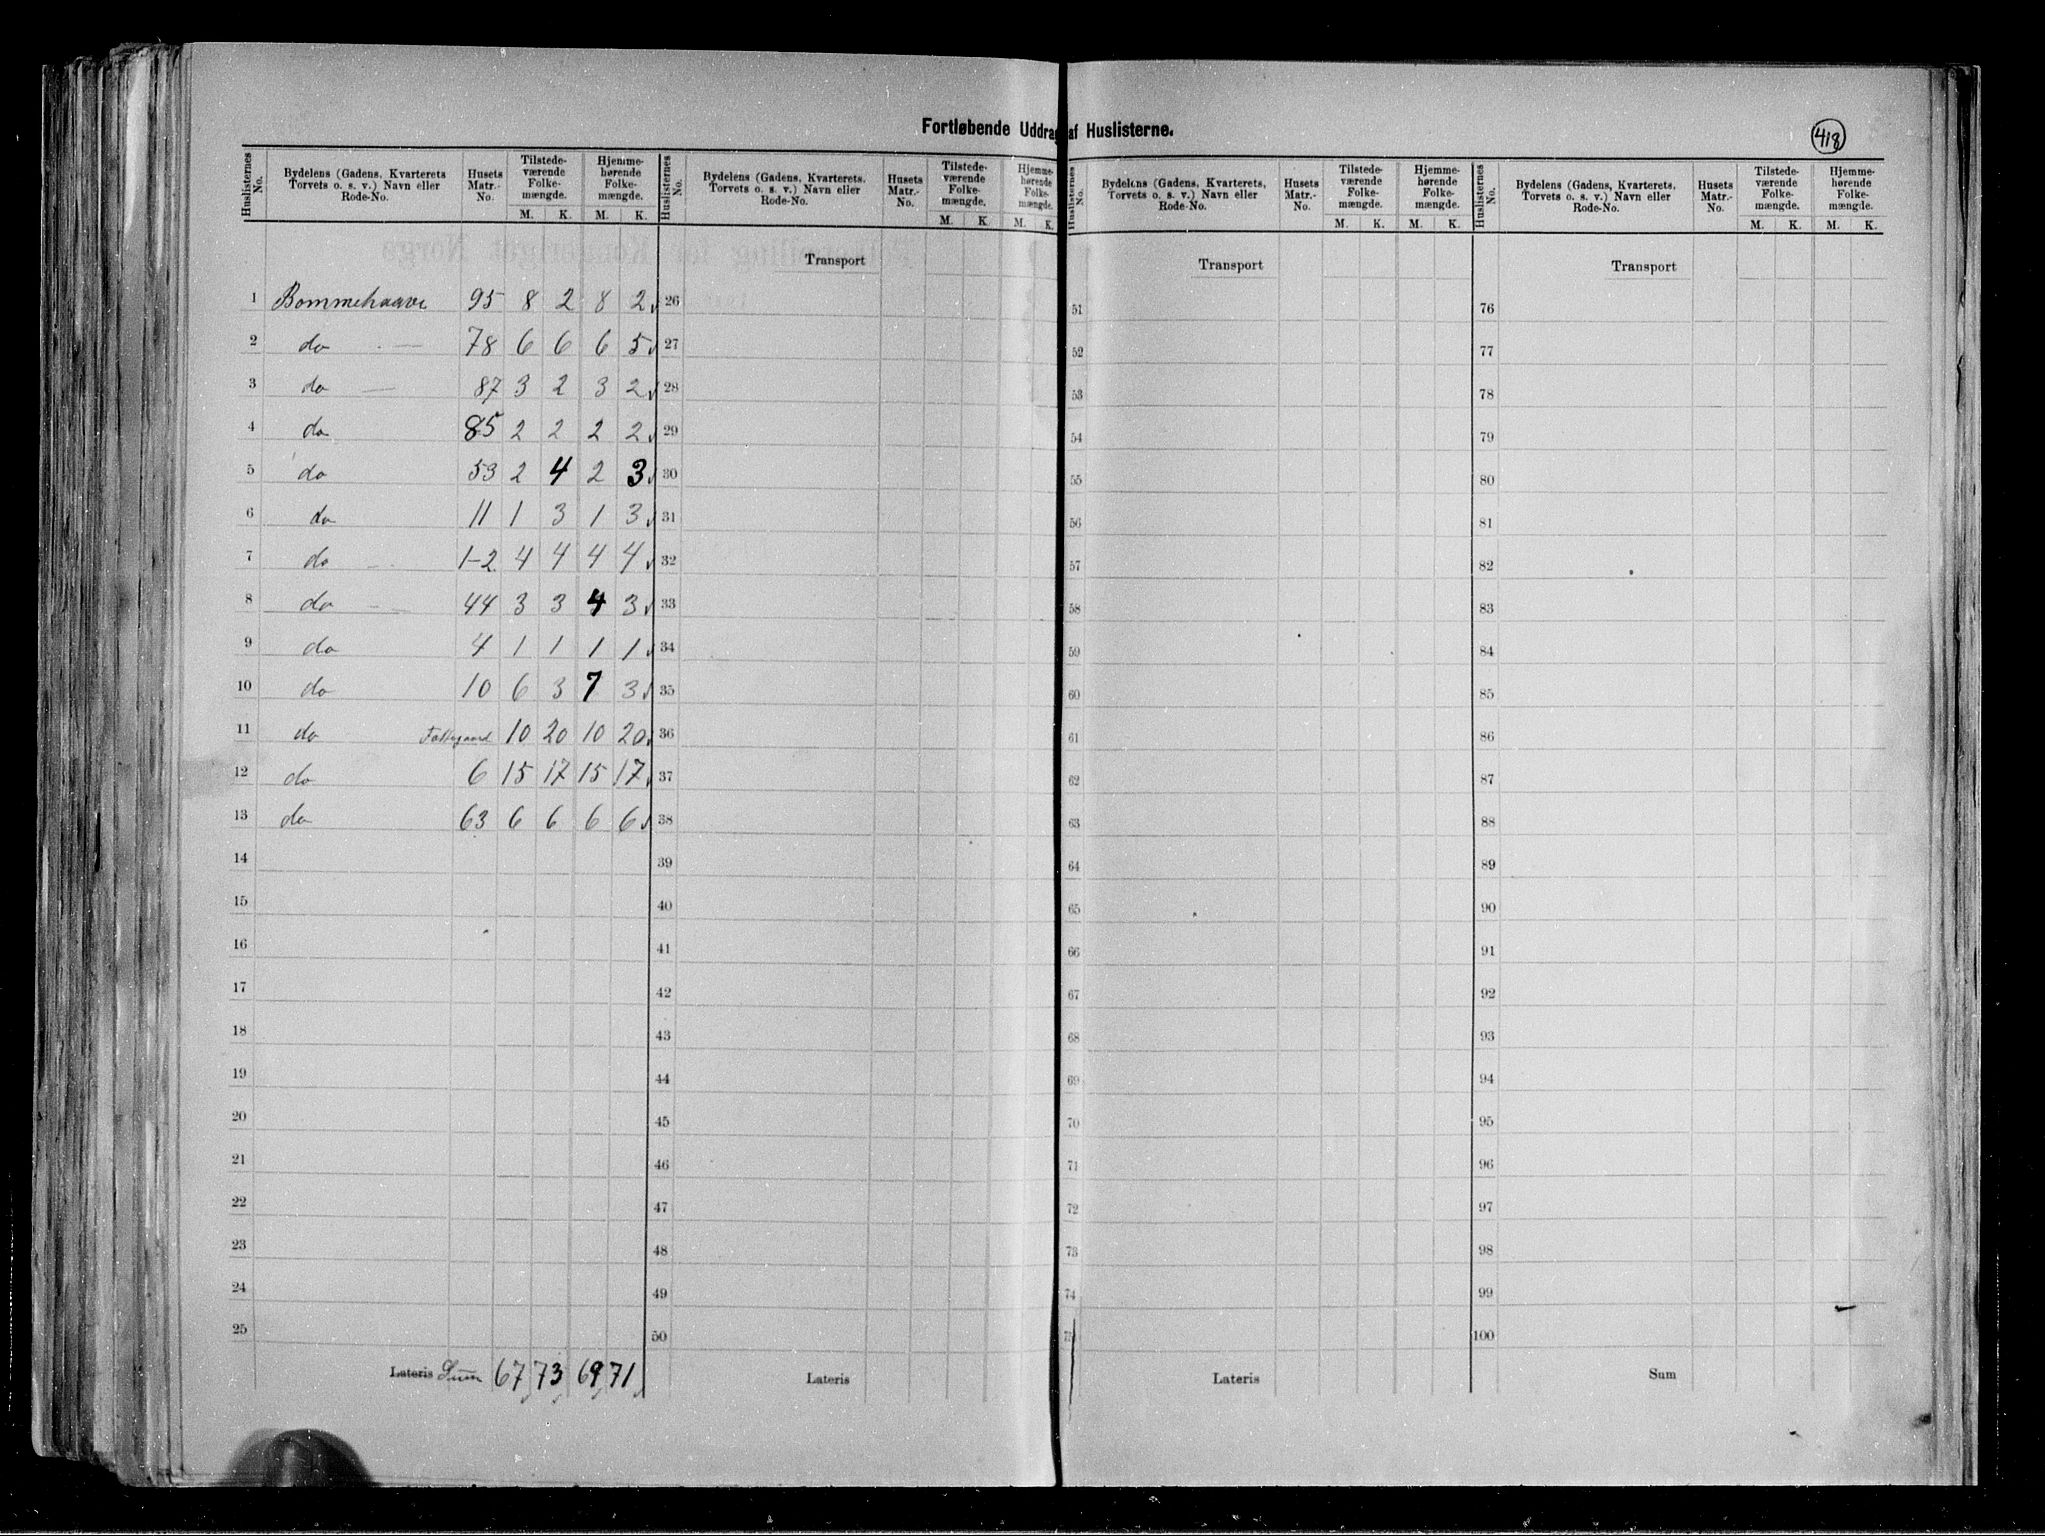 Fortløbende Uddrag af Huslisterne.
418
Huslisternes No. | Bydelens (Gadens, Kvarterets, Torvets o. s. v.) Navn eller Rode-No. | Husets Matr.-No. | Tilstede-værende Folke-mængde. M. K. | Hjemme-hørende Folke-mængde. M. K.
Huslisternes No. | Bydelens (Gadens, Kvarterets, Torvets o. s. v.) Navn eller Rode-No. | Husets Matr.-No. | Tilstede-værende Folke-mængde. M. K. | Hjemme-hørende Folke-mængde. M. K.
Huslisternes No. | Bydelens (Gadens, Kvarterets, Torvets o. s. v.) Navn eller Rode-No. | Husets Matr.-No. | Tilstede-værende Folke-mængde. M. K. | Hjemme-hørende Folke-mængde. M. K.
Huslisternes No. | Bydelens (Gadens, Kvarterets, Torvets o. s. v.) Navn eller Rode-No. | Husets Matr.-No. | Tilstede-værende Folke-mængde. M. K. | Hjemme-hørende Folke-mængde. M. K.
Transport Transport Transport
1 Bommehaave 95 8 2 8 2 26 51 76
2 do 78 6 6 6 5 27 52 77
3 do 87 3 2 3 2 28 53 78
4 do 85 2 2 2 2 29 54 79
5 do 53 2 4 2 3 30 55 80
6 do 11 1 3 1 3 31 56 81
7 do 1-2 4 4 4 4 32 57 82
8 do 44 3 3 4 3 33 58 83
9 do 4 1 1 1 1 34 59 84
10 do 10 6 3 7 3 35 60 85
11 do 10 20 10 20 36 61 86
12 do 6 15 17 15 17 37 62 87
13 do 63 6 6 6 6 38 63 88
14 39 64 89
15 40 65 90
16 41 66 91
17 42 67 92
18 43 68 93
19 44 69 94
20 45 70 95
21 46 71 96
22 47 72 97
23 48 73 98
24 49 74 99
25 50 75 100
Lateris Sum 67 73 69 71 Lateris Lateris Sum